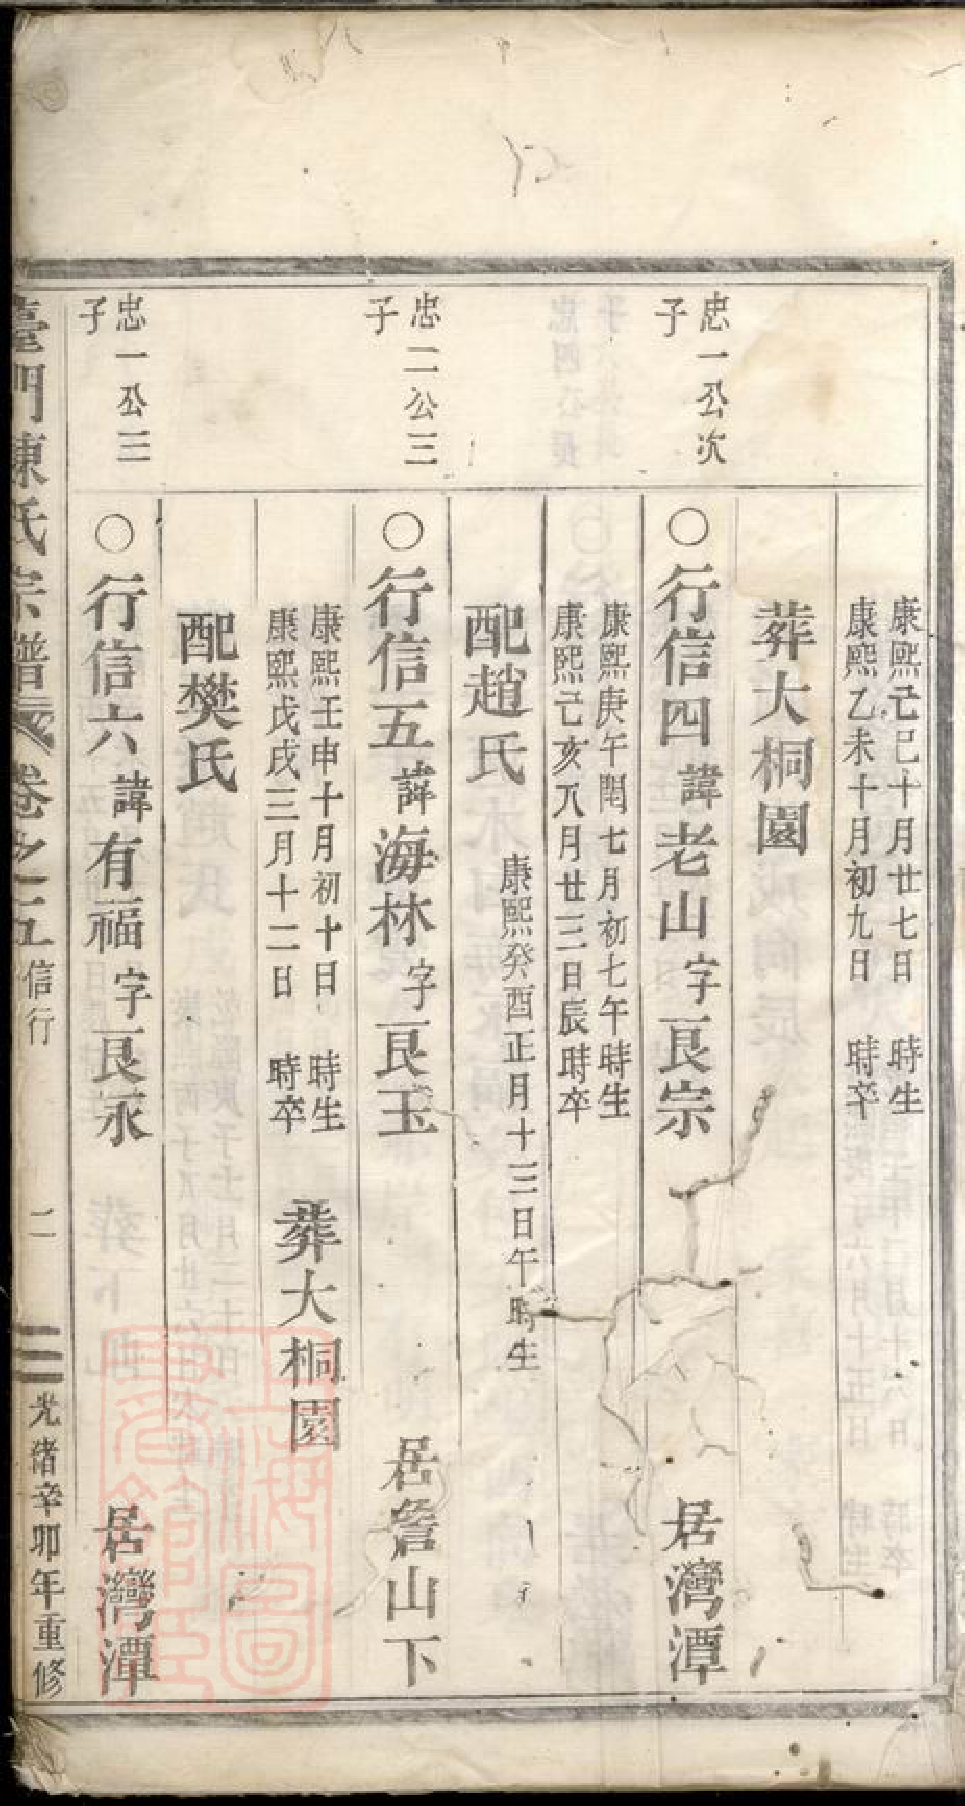 康熙己巳十月廿七日 時生
康熙乙未十月初九日 時卒
葬大桐園
忠一公次
子
○行信四諱老山字艮宗 居灣潭
康熙庚午閏七月初七午時生
康熙己亥八月廿三日辰時卒
配趙氏 康熙癸酉正月十三日午時生
忠二公三
子
○行信五諱海林字艮玉 居詹山下
康熙壬申十月初十日 時生
康熙戊戌三月十二日 時卒
葬大桐園
配樊氏
忠一公三
子
○行信六諱有福字艮永 居灣潭
臺門陳氏宗譜 卷之五 信行 二 光緒辛卯年重修
上海圖書館藏